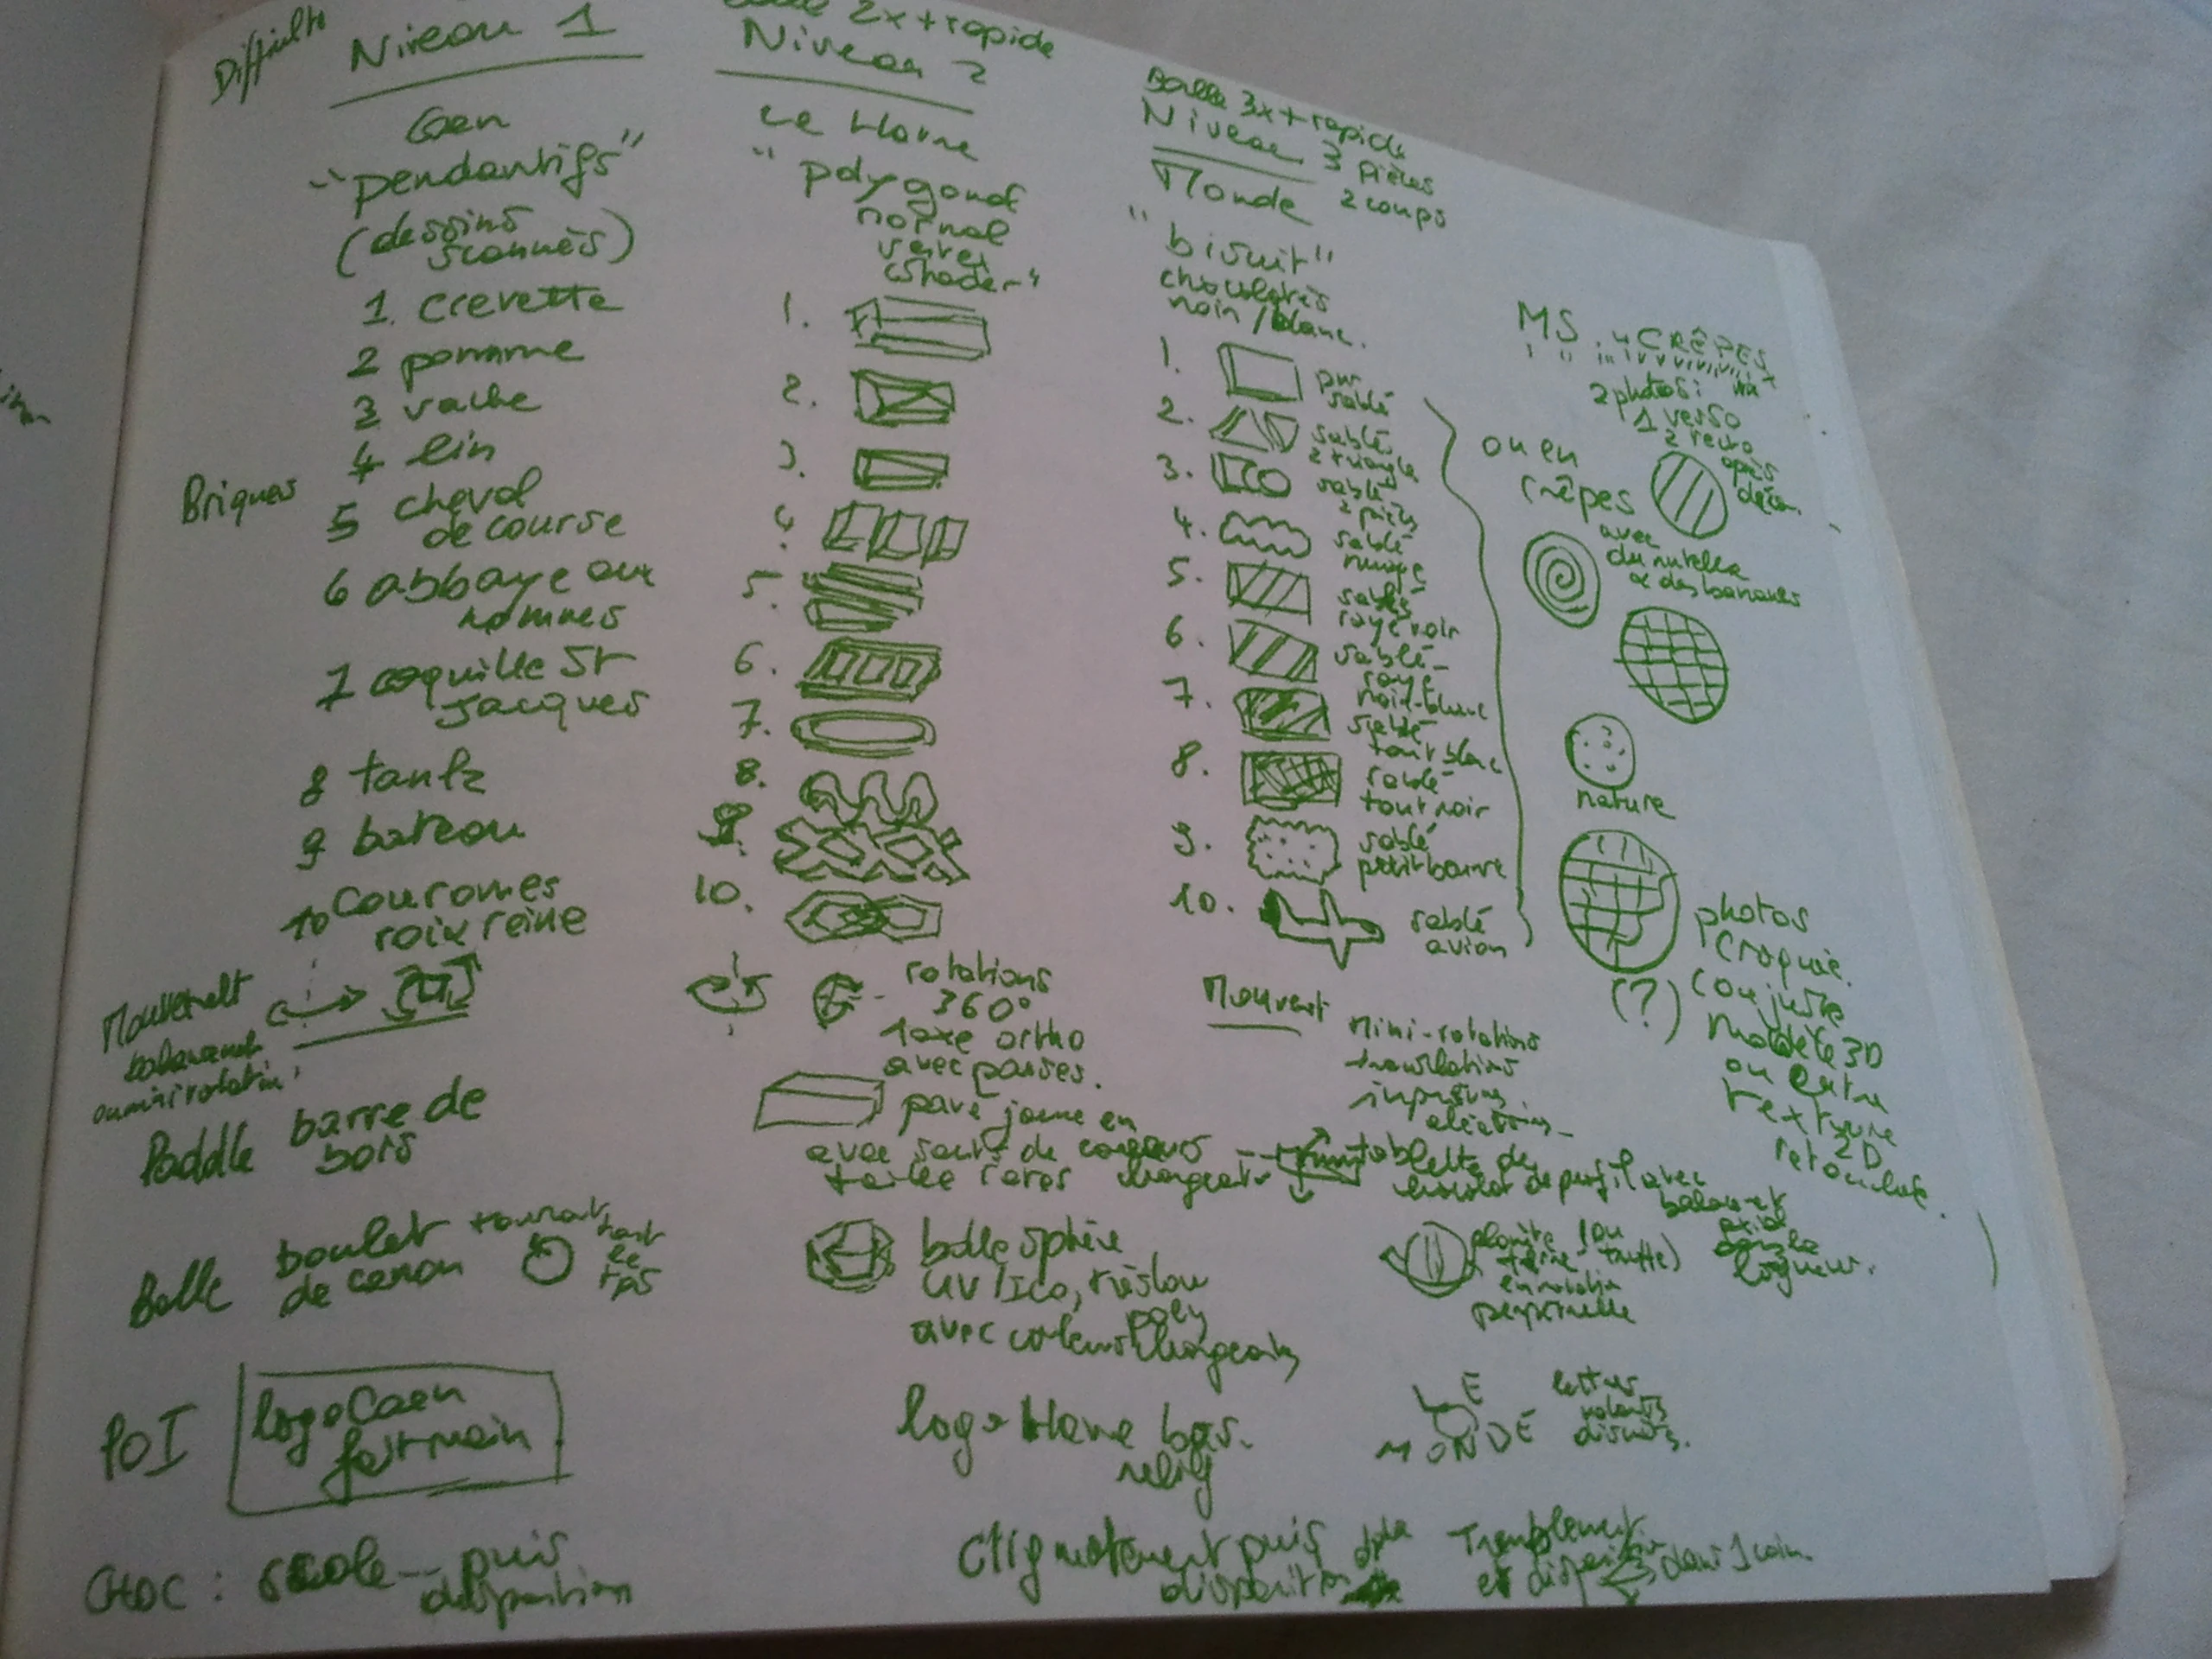 Difficulté
Niveau 1
Caen
"pendantifs"
(dessins
scannés)
Briques
1. crevette
2 pomme
3 vache
4 lin
5 cheval
de course
6 abbaye aux
hommes
7 coquille St
Jacques
8 tank
9 bateau
10 couronnes
roix reine
Mouvement
balancement
ou mini rotation
Paddle barre de
bois
Balle boulet
de canon
tournant
tout
le
tps
POI
logo Caen
fait main
CHOC : scale -- puis
disparition
2x + rapide
Niveau 2
Le Havre
"polygones
normal
vertex
shader"
1.
2.
3.
4.
5.
6.
7.
8.
9.
10.
rotations
360°
1 axe ortho
avec pauses.
pavé jaune en
avec sauts de couleurs
taille changeant
balle sphère
UV/Ico, très low
poly
avec couleurs changeantes
logo Havre bas-
relief
Clignotement puis
disparition
Balle 3x + rapide
Niveau 3
Pièces
2 coups
Monde
"biscuit"
chocolatés
noir / blanc.
1. pur
sablé
2. sablé
2 triangle
3. sablé
2 pièces
4. sablé
nuage
5. sablé
rayé noir
6. sablé
rayé
noir-blanc
7. sablé
tout blanc
8. sablé
tout noir
9. sablé
petit beurre
10. sablé
avion
Mouvent
mini-rotations
translations
tablette de
chocolat de profil avec
balancement
planète (ou
terre-truffe)
en rotation
perpétuelle
LE
MONDE
lettres
volantes
biscuits.
Tremblement
et disparition dans 1 coin.
MS. "CRÊPES
2 photos :
1 verso
2 recto
après
déco.
ou en
crêpes
avec
du nutella
& des bananes
nature
photos
croquée.
(?) ou juste
modèle 3D
ou extra
texture
2D
retouchée.